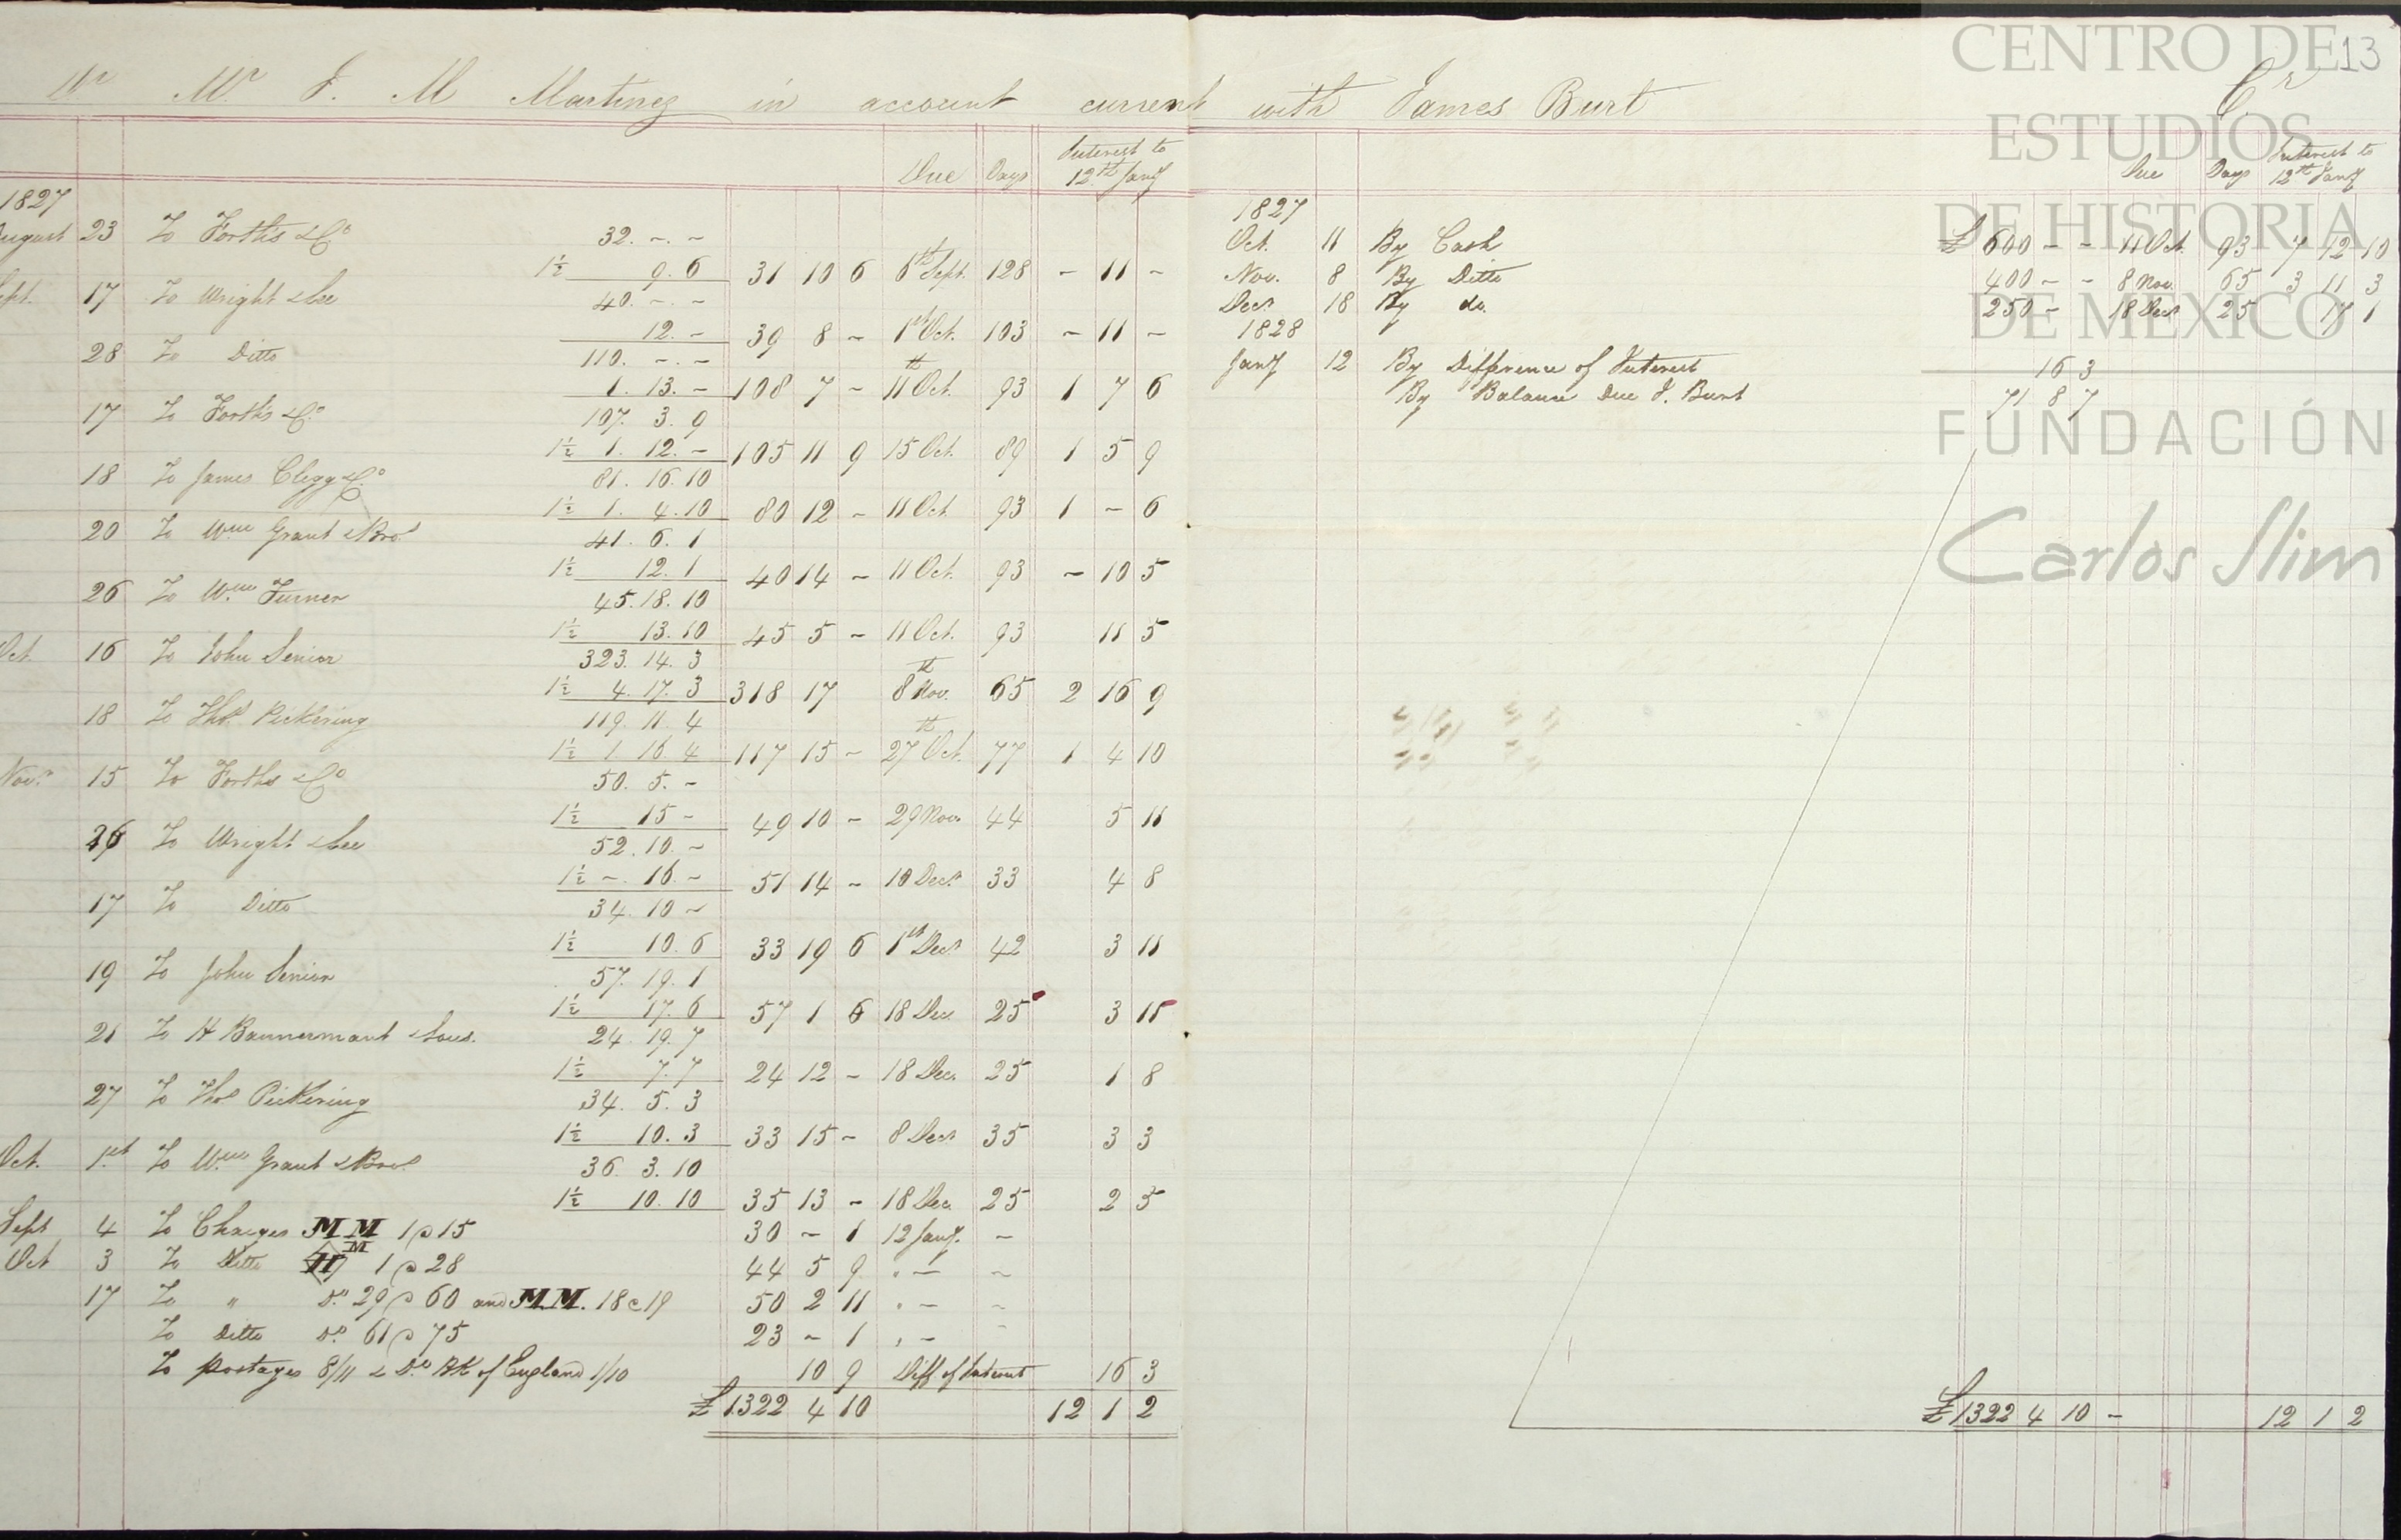 Dr Mr. J. M Martinez in account current with James Burt Cr
13
Due Days Interest to 12th Jany
1827
August 23 To Forths & Co 32. ~. ~
1½ 9. 6 31 10 6 6th Sept. 128 ~ 11 ~
Sept. 17 To Wright & Lee 40. ~. ~
12. ~ 39 8 ~ 1st Oct. 103 ~ 11 ~
28 To Ditto 110. ~. ~
1. 13. ~ 108 7 ~ 11th Oct. 93 1 7 6
17 To Forths & Co 107. 3. 9
1½ 1. 12. ~ 105 11 9 15 Oct. 89 1 5 9
18 To James Clegg & Co 81. 16. 10
1½ 1. 4. 10 80 12 ~ 11 Oct. 93 1 ~ 6
20 To Wm Grant & Bros 41. 6. 1
1½ 12. 1 40 14 ~ 11 Oct. 93 ~ 10 5
26 To Wm Turner 45. 18. 10
1½ 13. 10 45 5 ~ 11 Oct. 93 11 5
Oct. 16 To John Senior 323. 14. 3
1½ 4. 17. 3 318 17 8th Nov. 65 2 16 9
18 To Thos Pickering 119. 11. 4
1½ 1. 16. 4 117 15 ~ 27th Oct. 77 1 4 10
Novr 15 To Forths & Co 50. 5. ~
1½ 15 ~ 49 10 ~ 29 Nov. 44 5 11
26 To Wright & Lee 52. 10. ~
1½ ~. 16. ~ 51 14 ~ 10 Decr 33 4 8
17 To Ditto 34. 10 ~
1½ 10. 6 33 19 6 1st Decr 42 3 11
19 To John Senior 57. 19. 1
1½ 17. 6 57 1 6 18 Dec 25 3 11
21 To H Bannermant & Sons. 24. 19. 7
1½ 7. 7 24 12 ~ 18 Dec. 25 1 8
27 To Thos Pickering 34. 5. 3
1½ 10. 3 33 15 ~ 8 Decr 35 3 3
Oct. 1st To Wm Grant & Bros 36. 3. 10
1½ 10. 10 35 13 ~ 18 Dec. 25 2 5
Sept 4 To Charges MM 1 @ 15 30 ~ 1 12 Jany. ~
Oct 3 To Ditto M H 1 @ 28 44 5 9 . — ~
17 To " Do 29 @ 60 and MM. 18 @ 19 50 2 11 . — ~
To Ditto Do 61 @ 75 23 ~ 1 , — ~
To postages 8/11 & Do BK of England 1/10 10 9 Diff of Interest 16 3
£1322 4 10 12 1 2
Due Days Interest to 12th Jany
1827
Oct. 11 By Cash £ 600 ~ ~ 11 Oct. 93 7 12 10
Nov. 8 By Ditto 400 ~ ~ 8 Nov. 65 3 11 3
Decr 18 By do. 250 ~ 18 Decr 25 17 1
1828
Jany 12 By Difference of Interest 16 3
By Balance Due J. Burt 71 8 7
£1322 4 10 ~ 12 1 2
CENTRO DE
ESTUDIOS
DE HISTORIA
DE MEXICO
FUNDACIÓN
Carlos Slim